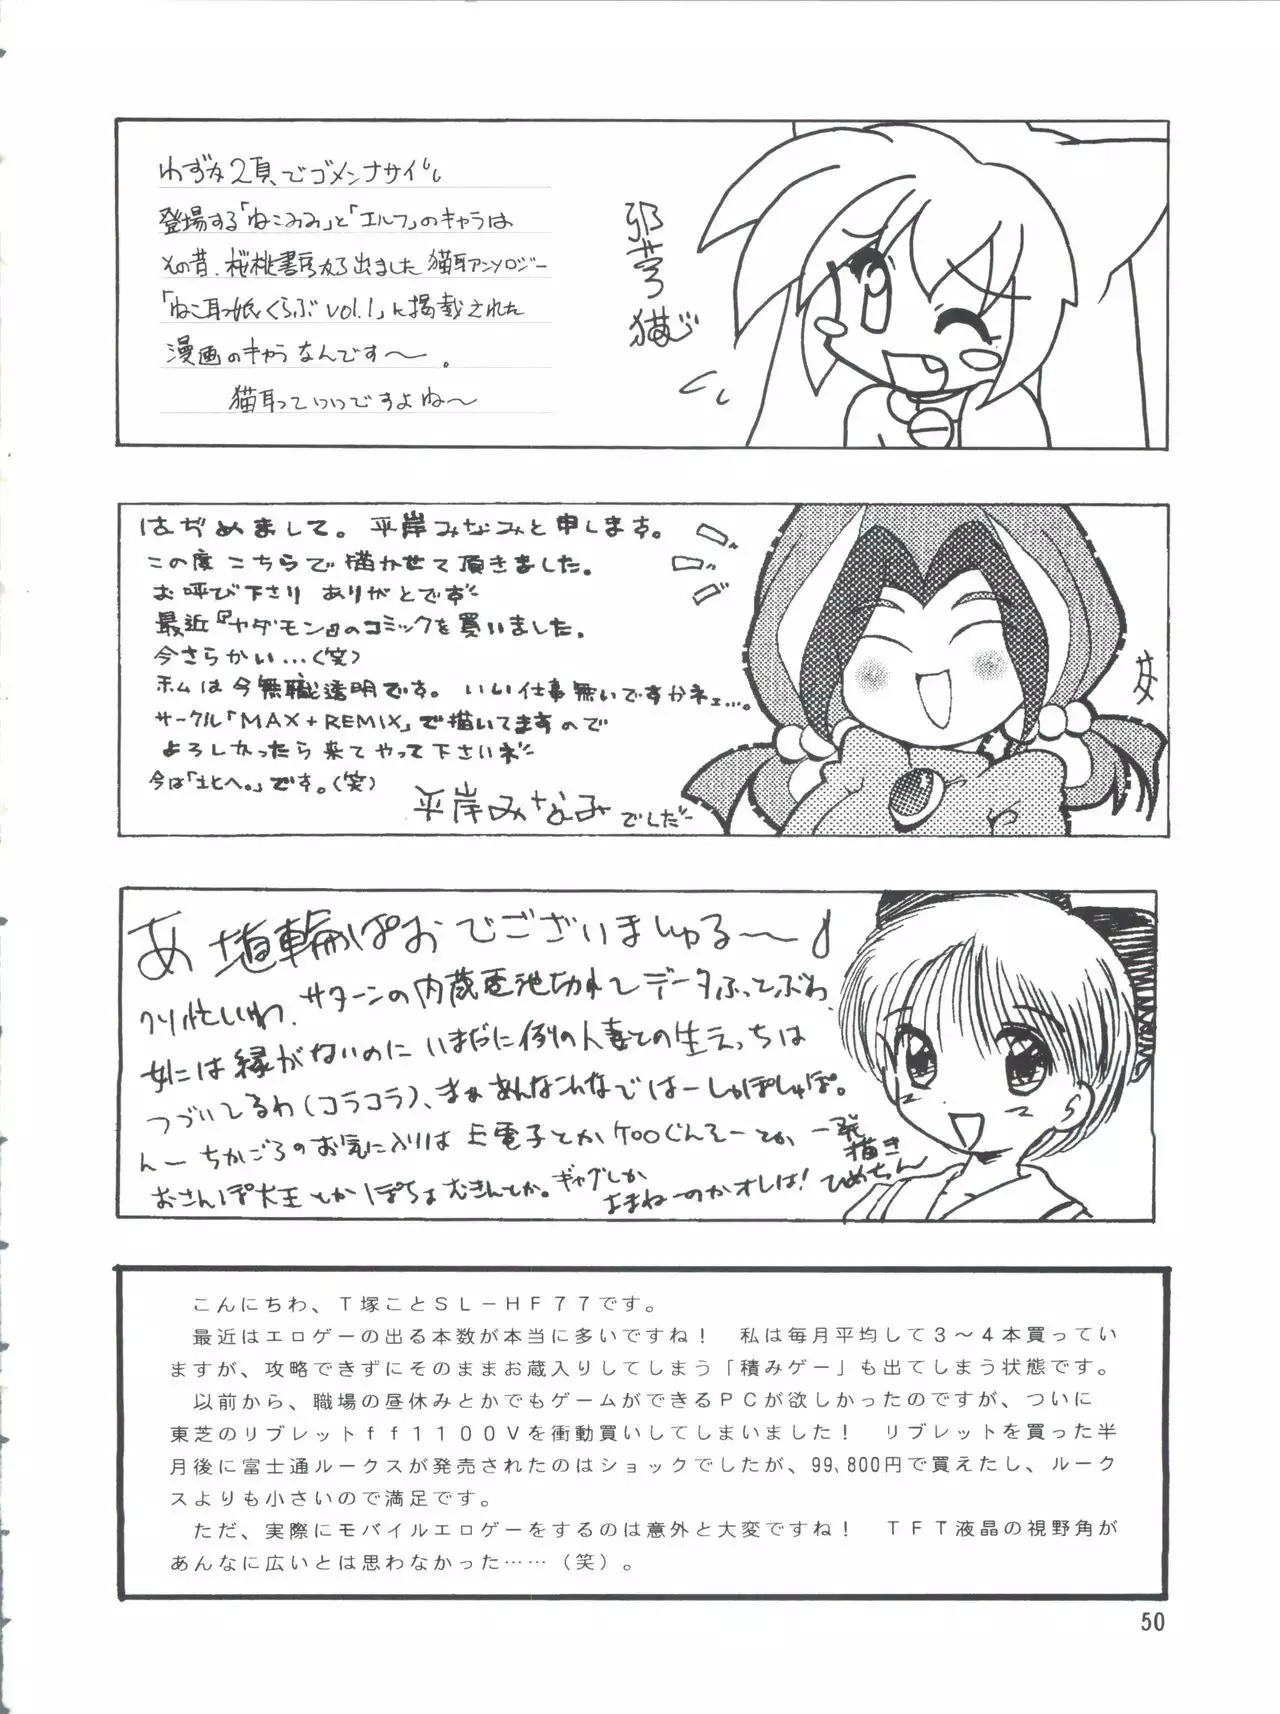 わずか2頁でゴメンナサイ
登場する「ねこみみ」と「エルフ」のキャラは
その昔、桜桃書房から出ました猫耳アンソロジー
「ねこ耳っ娘くらぶvol.1」に掲載された
漫画のキャラなんです～。
猫耳っていいですよね～
はぢめまして。平岸みなみと申します。
この度こちらで描かせて頂きました。
お呼び下さり ありがとです
最近『ヤダモン』のコミックを買いました。
今さらかい…(笑)
ホムは今無職透明です。いい仕事無いですかネェ…。
サークル「MAX+REMIX」で描いてますので
よろしかったら来てやって下さいネ
今は「北へ。」です。(笑)
平岸みなみでした
あ 埴輪ぱおでございましゅる～♪
忙しいわ、サターンの内蔵電池切れてデータふっとぶわ
女には縁がないのにいまだに例の人妻との生えっちは
つづいてるわ(コラコラ)、まぁあんなこんなではーしゅぽしゅぽ。
んーちかごろのお気に入りは
おさんぽ大王とかぽちょむきんとか。ギャグしか
よまねーのかオレは!
一発
描き
ひめちゃん
こんにちわ、T塚ことSL－HF77です。
最近はエロゲーの出る本数が本当に多いですね！　私は毎月平均して3～4本買ってい
ますが、攻略できずにそのままお蔵入りしてしまう「積みゲー」も出てしまう状態です。
以前から、職場の昼休みとかでもゲームができるPCが欲しかったのですが、ついに
東芝のリブレットff1100Vを衝動買いしてしまいました！　リブレットを買った半
月後に富士通ルークスが発売されたのはショックでしたが、99,800円で買えたし、ルーク
スよりも小さいので満足です。
ただ、実際にモバイルエロゲーをするのは意外と大変ですね！　TFT液晶の視野角が
あんなに広いとは思わなかった……（笑）。
50